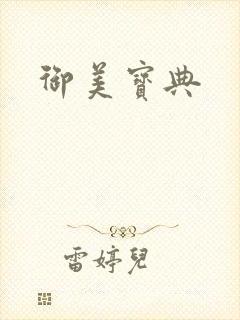 御美寶典
雷婷兒